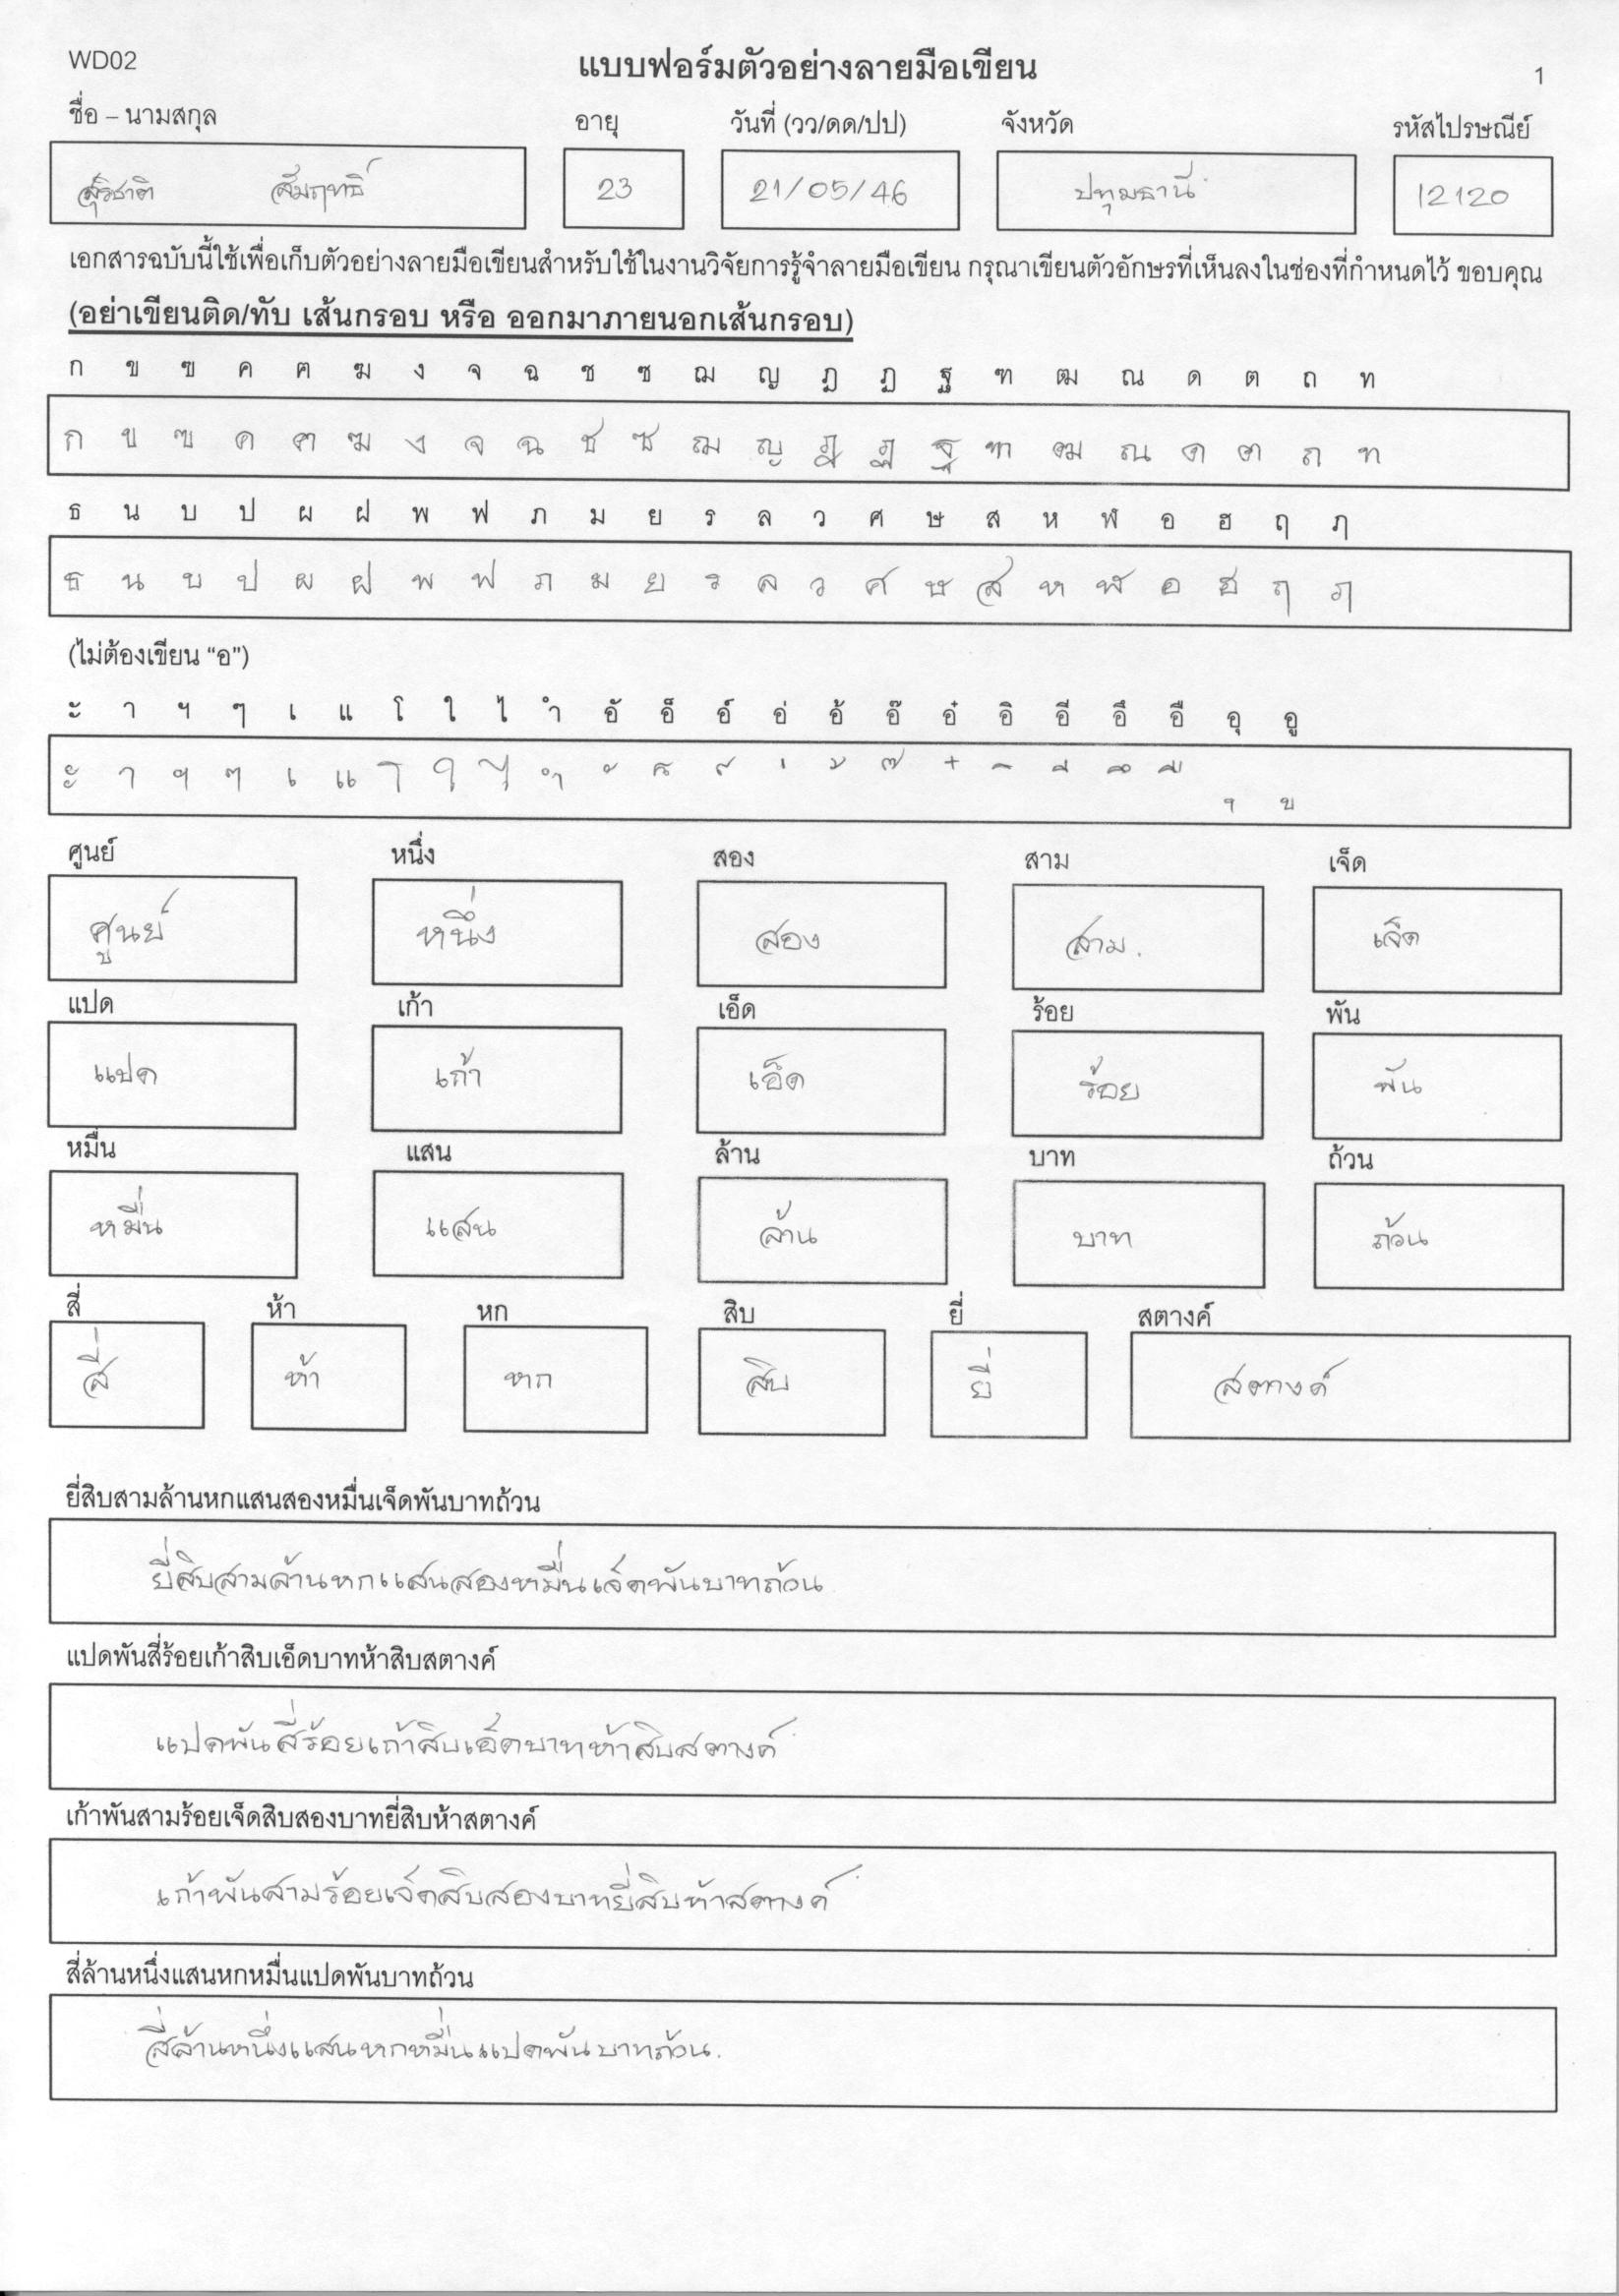 WD02 แบบฟอร์มตัวอย่างลายมือเขียน 1
ชื่อ – นามสกุล อายุ วันที่ (วว/ดด/ปป) จังหวัด รหัสไปรษณีย์
สุริชาติ สัมฤทธิ์ 23 21/05/46 ปทุมธานี 12120
เอกสารฉบับนี้ใช้เพื่อเก็บตัวอย่างลายมือเขียนสำหรับใช้ในงานวิจัยการรู้จำลายมือเขียน กรุณาเขียนตัวอักษรที่เห็นลงในช่องที่กำหนดไว้ ขอบคุณ
(อย่าเขียนติด/ทับ เส้นกรอบ หรือ ออกมาภายนอกเส้นกรอบ)
ก ข ฃ ค ฅ ฆ ง จ ฉ ช ซ ฌ ญ ฎ ฏ ฐ ฑ ฒ ณ ด ต ถ ท
ก ข ฃ ค ฅ ฆ ง จ ฉ ช ซ ฌ ญ ฎ ฏ ฐ ฑ ฒ ณ ด ต ถ ท
ธ น บ ป ผ ฝ พ ฟ ภ ม ย ร ล ว ศ ษ ส ห ฬ อ ฮ ฤ ฦ
ธ น บ ป ผ ฝ พ ฟ ภ ม ย ร ล ว ศ ษ ส ห ฬ อ ฮ ฤ ฦ
(ไม่ต้องเขียน “อ”)
ะ า ฯ ๆ เ แ โ ใ ไ ำ อั อ็ อ์ อ่ อ้ อ๊ อ๋ อิ อี อึ อื อุ อู
ะ า ฯ ๆ เ แ โ ใ ไ ำ ั ็ ์ ่ ้ ๊ ๋ ิ ี ึ ื ุ ู
ศูนย์ หนึ่ง สอง สาม เจ็ด
ศูนย์ หนึ่ง สอง สาม. เจ็ด
แปด เก้า เอ็ด ร้อย พัน
แปด เก้า เอ็ด ร้อย พัน
หมื่น แสน ล้าน บาท ถ้วน
หมื่น แสน ล้าน บาท ถ้วน
สี่ ห้า หก สิบ ยี่ สตางค์
สี่ ห้า หก สิบ ยี่ สตางค์
ยี่สิบสามล้านหกแสนสองหมื่นเจ็ดพันบาทถ้วน
ยี่สิบสามล้านหกแสนสองหมื่นเจ็ดพันบาทถ้วน
แปดพันสี่ร้อยเก้าสิบเอ็ดบาทห้าสิบสตางค์
แปดพันสี่ร้อยเก้าสิบเอ็ดบาทห้าสิบสตางค์
เก้าพันสามร้อยเจ็ดสิบสองบาทยี่สิบห้าสตางค์
เก้าพันสามร้อยเจ็ดสิบสองบาทยี่สิบห้าสตางค์
สี่ล้านหนึ่งแสนหกหมื่นแปดพันบาทถ้วน
สี่ล้านหนึ่งแสนหกหมื่นแปดพันบาทถ้วน.